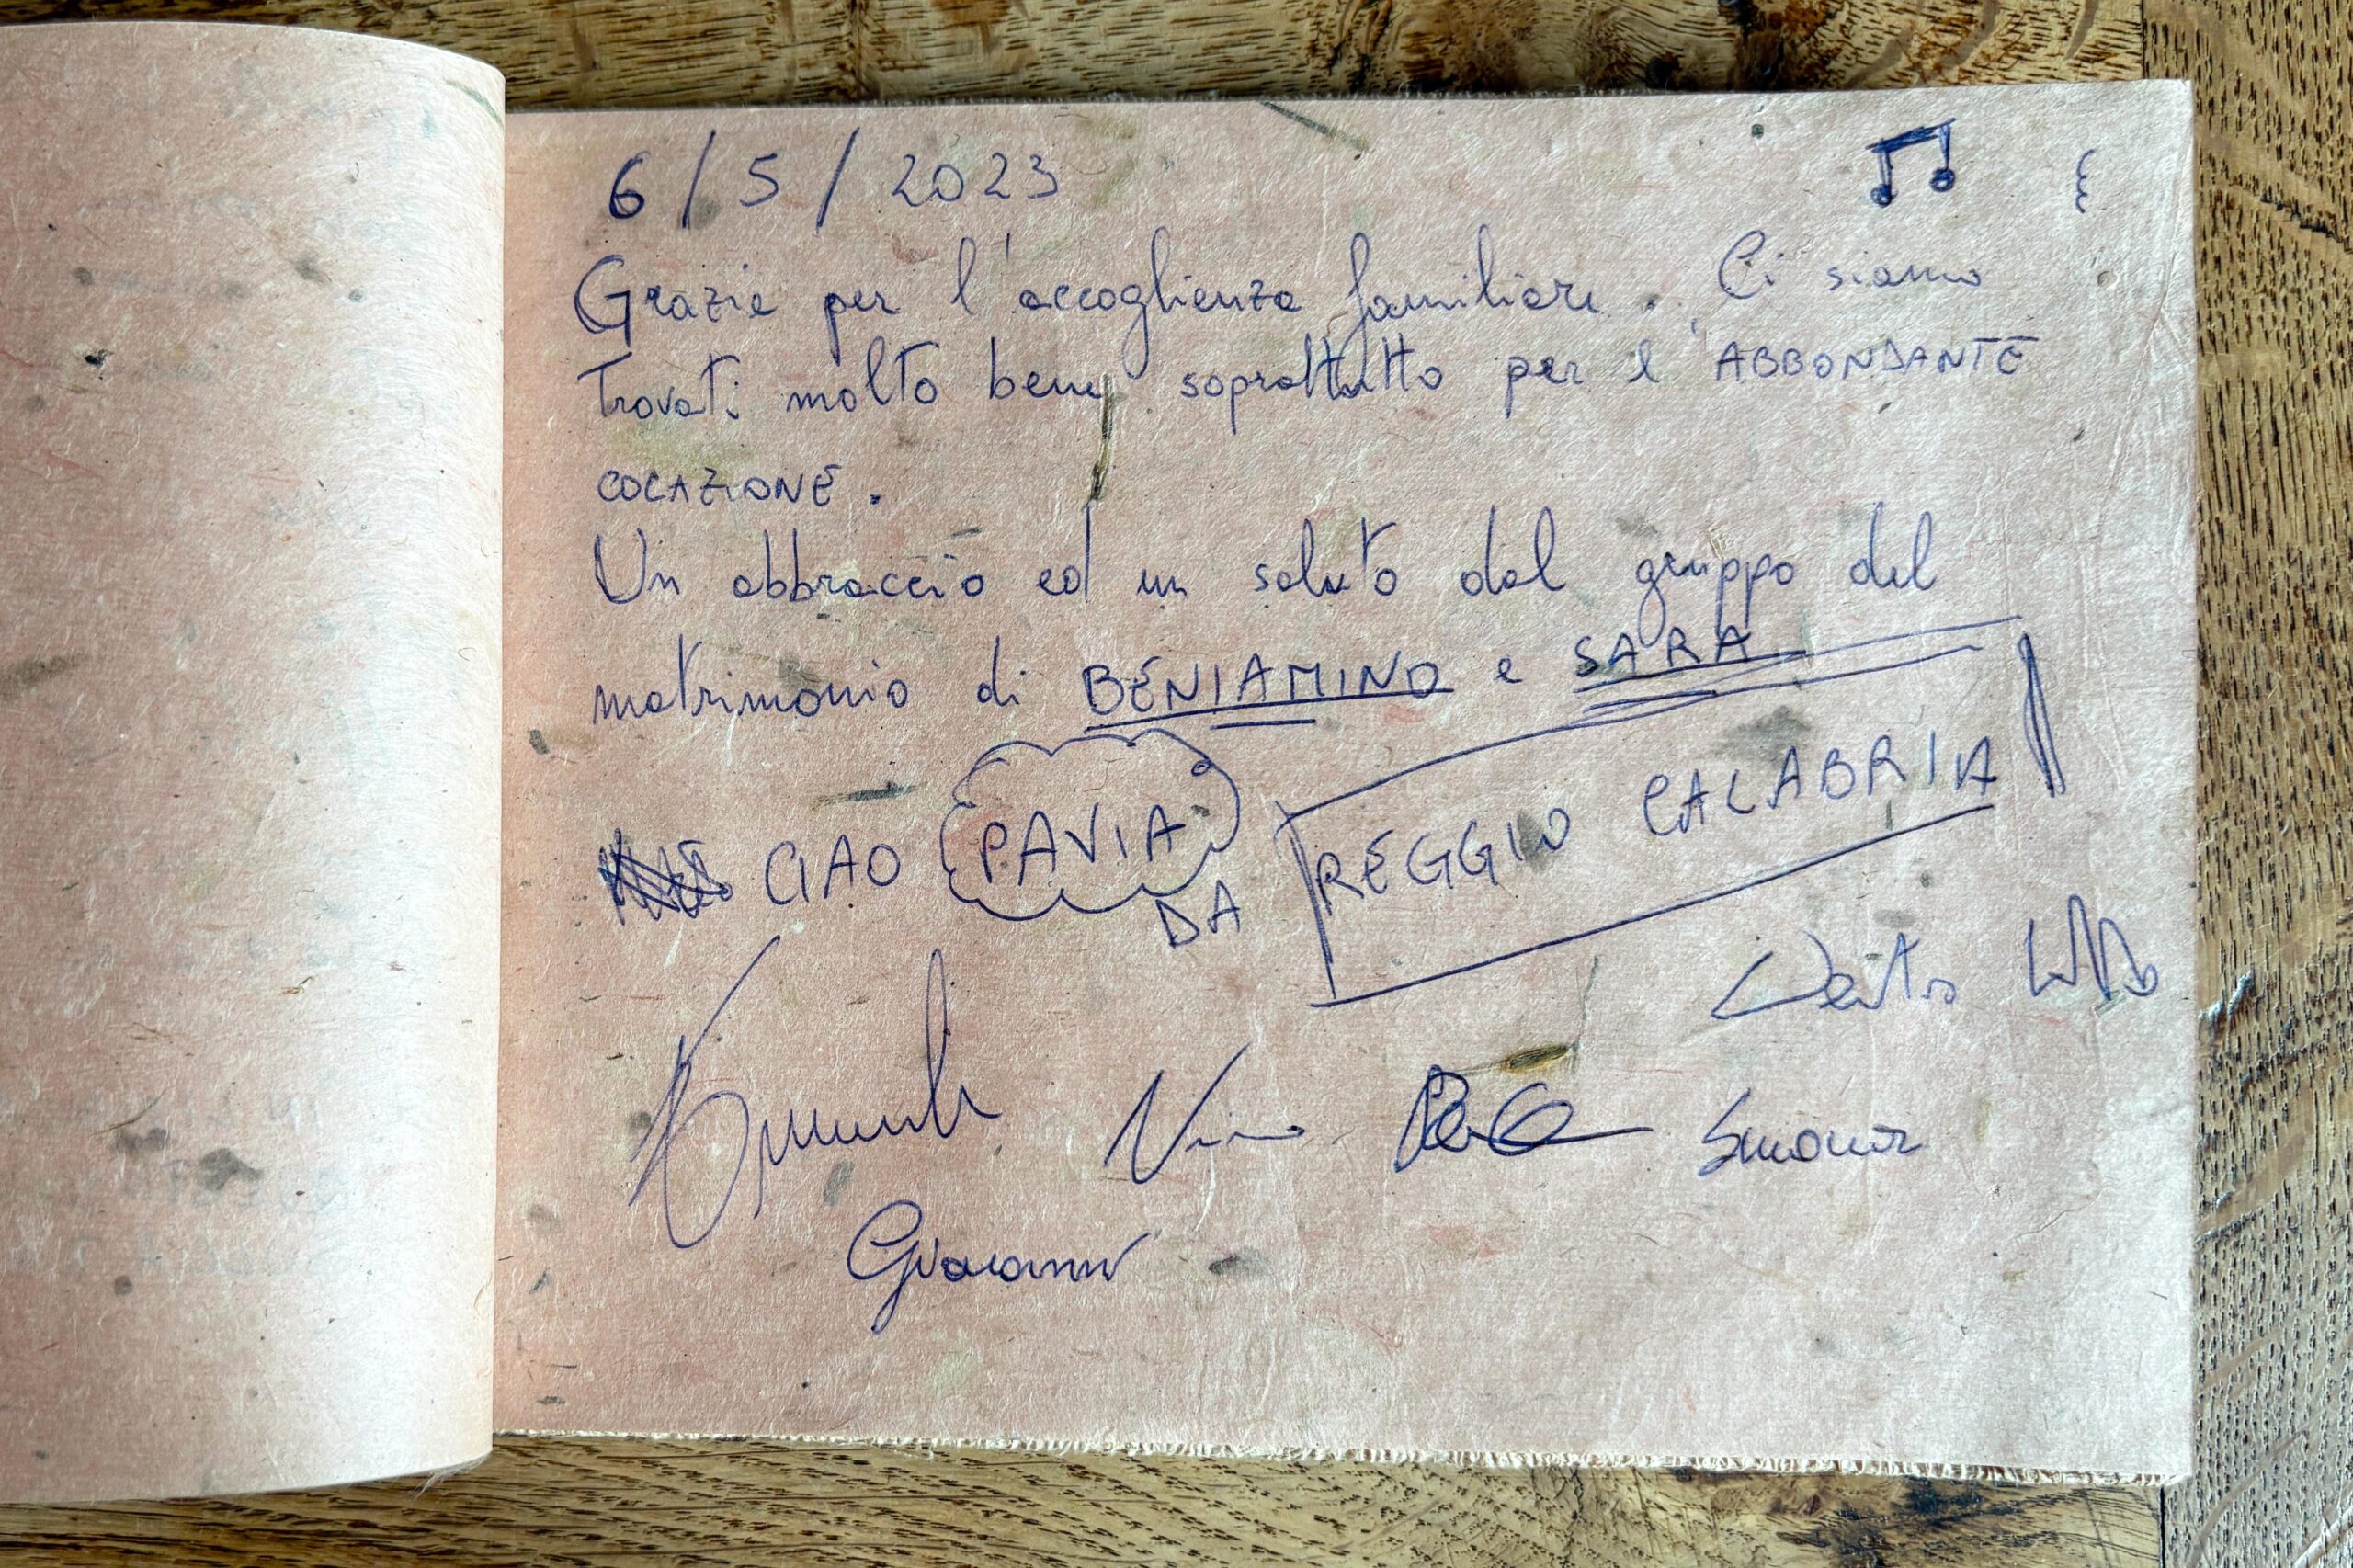 6/5/2023
Grazie per l'accoglienza familiare. Ci siamo
trovati molto bene soprattutto per l'ABBONDANTE
COLAZIONE.
Un abbraccio ed un saluto dal gruppo del
matrimonio di BENIAMINO e SARA
CIAO PAVIA
DA REGGIO CALABRIA
Nino Simona
Giovanni